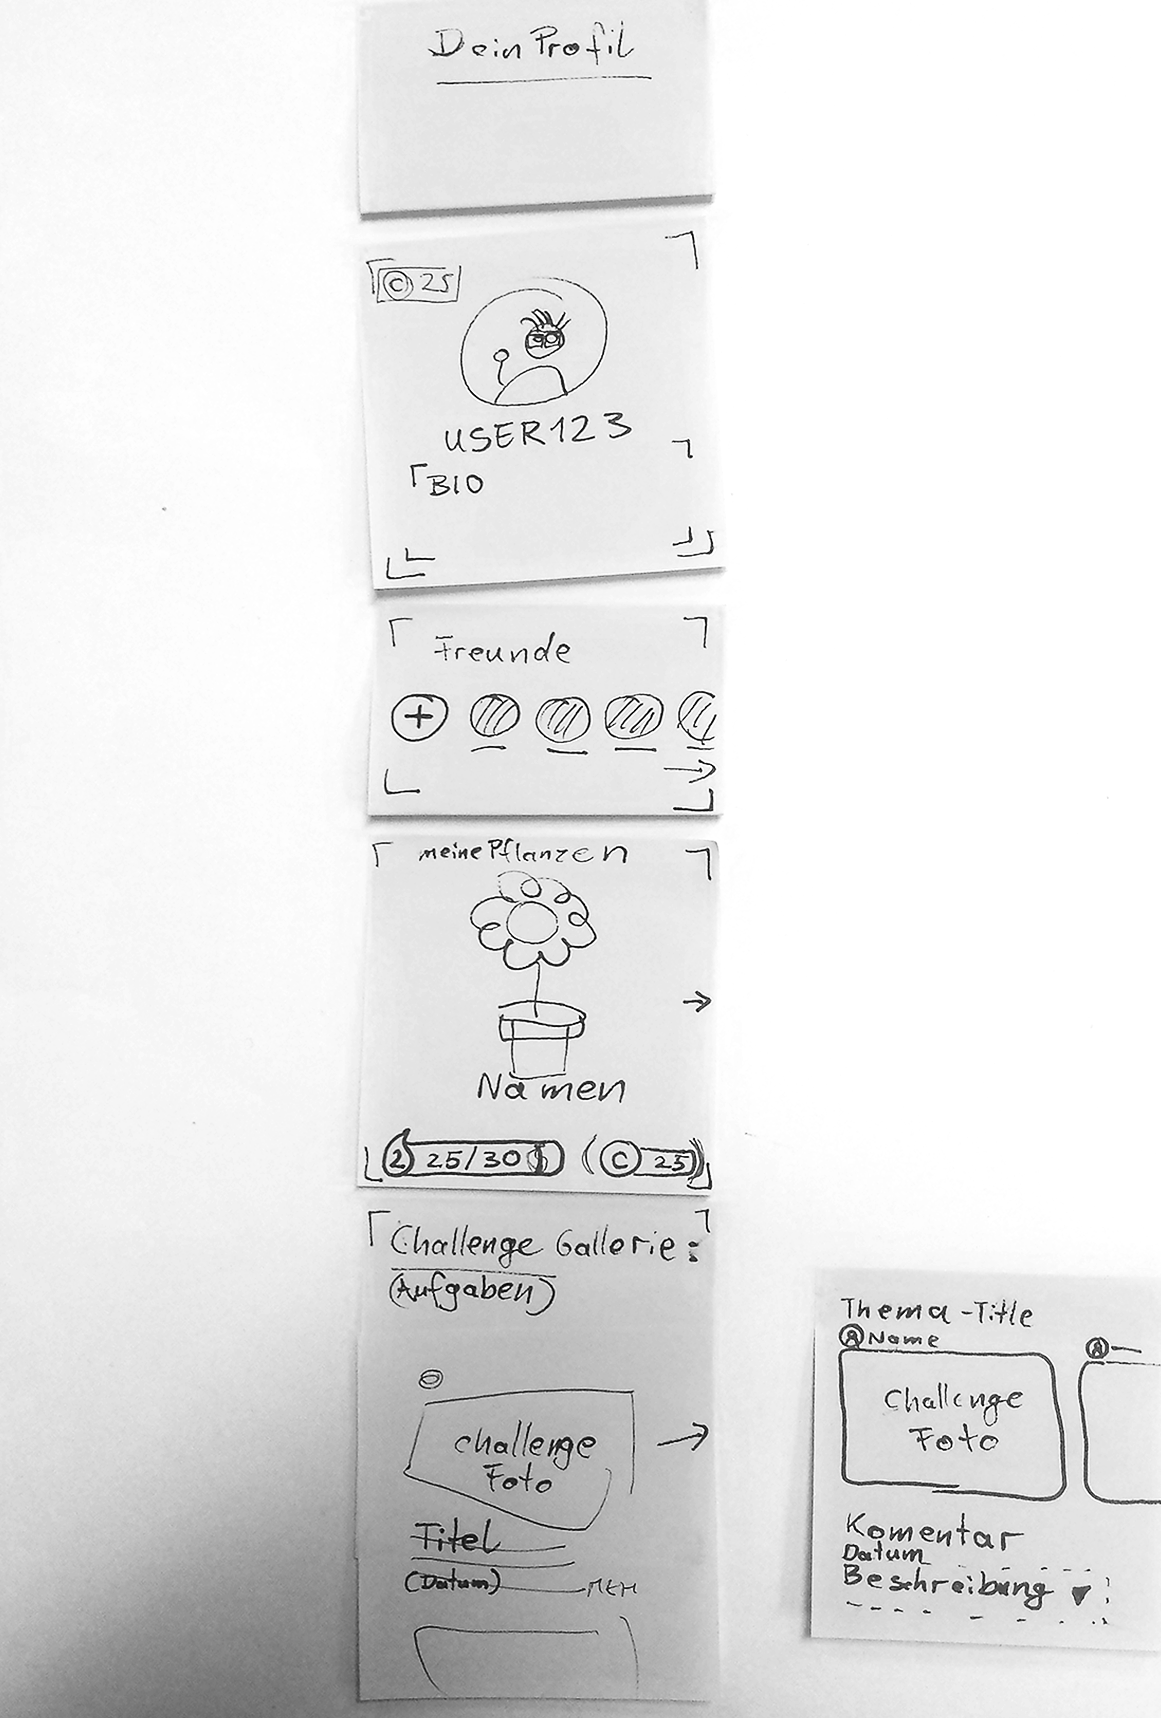 Dein Profil
C 25
USER123
BIO
Freunde
+
meine Pflanzen
Namen
2 25/30 C 25
Challenge Gallerie:
(Aufgaben)
challenge
Foto
Titel
(Datum)
Thema-Title
Name
Challenge
Foto
Komentar
Datum
Beschreibung